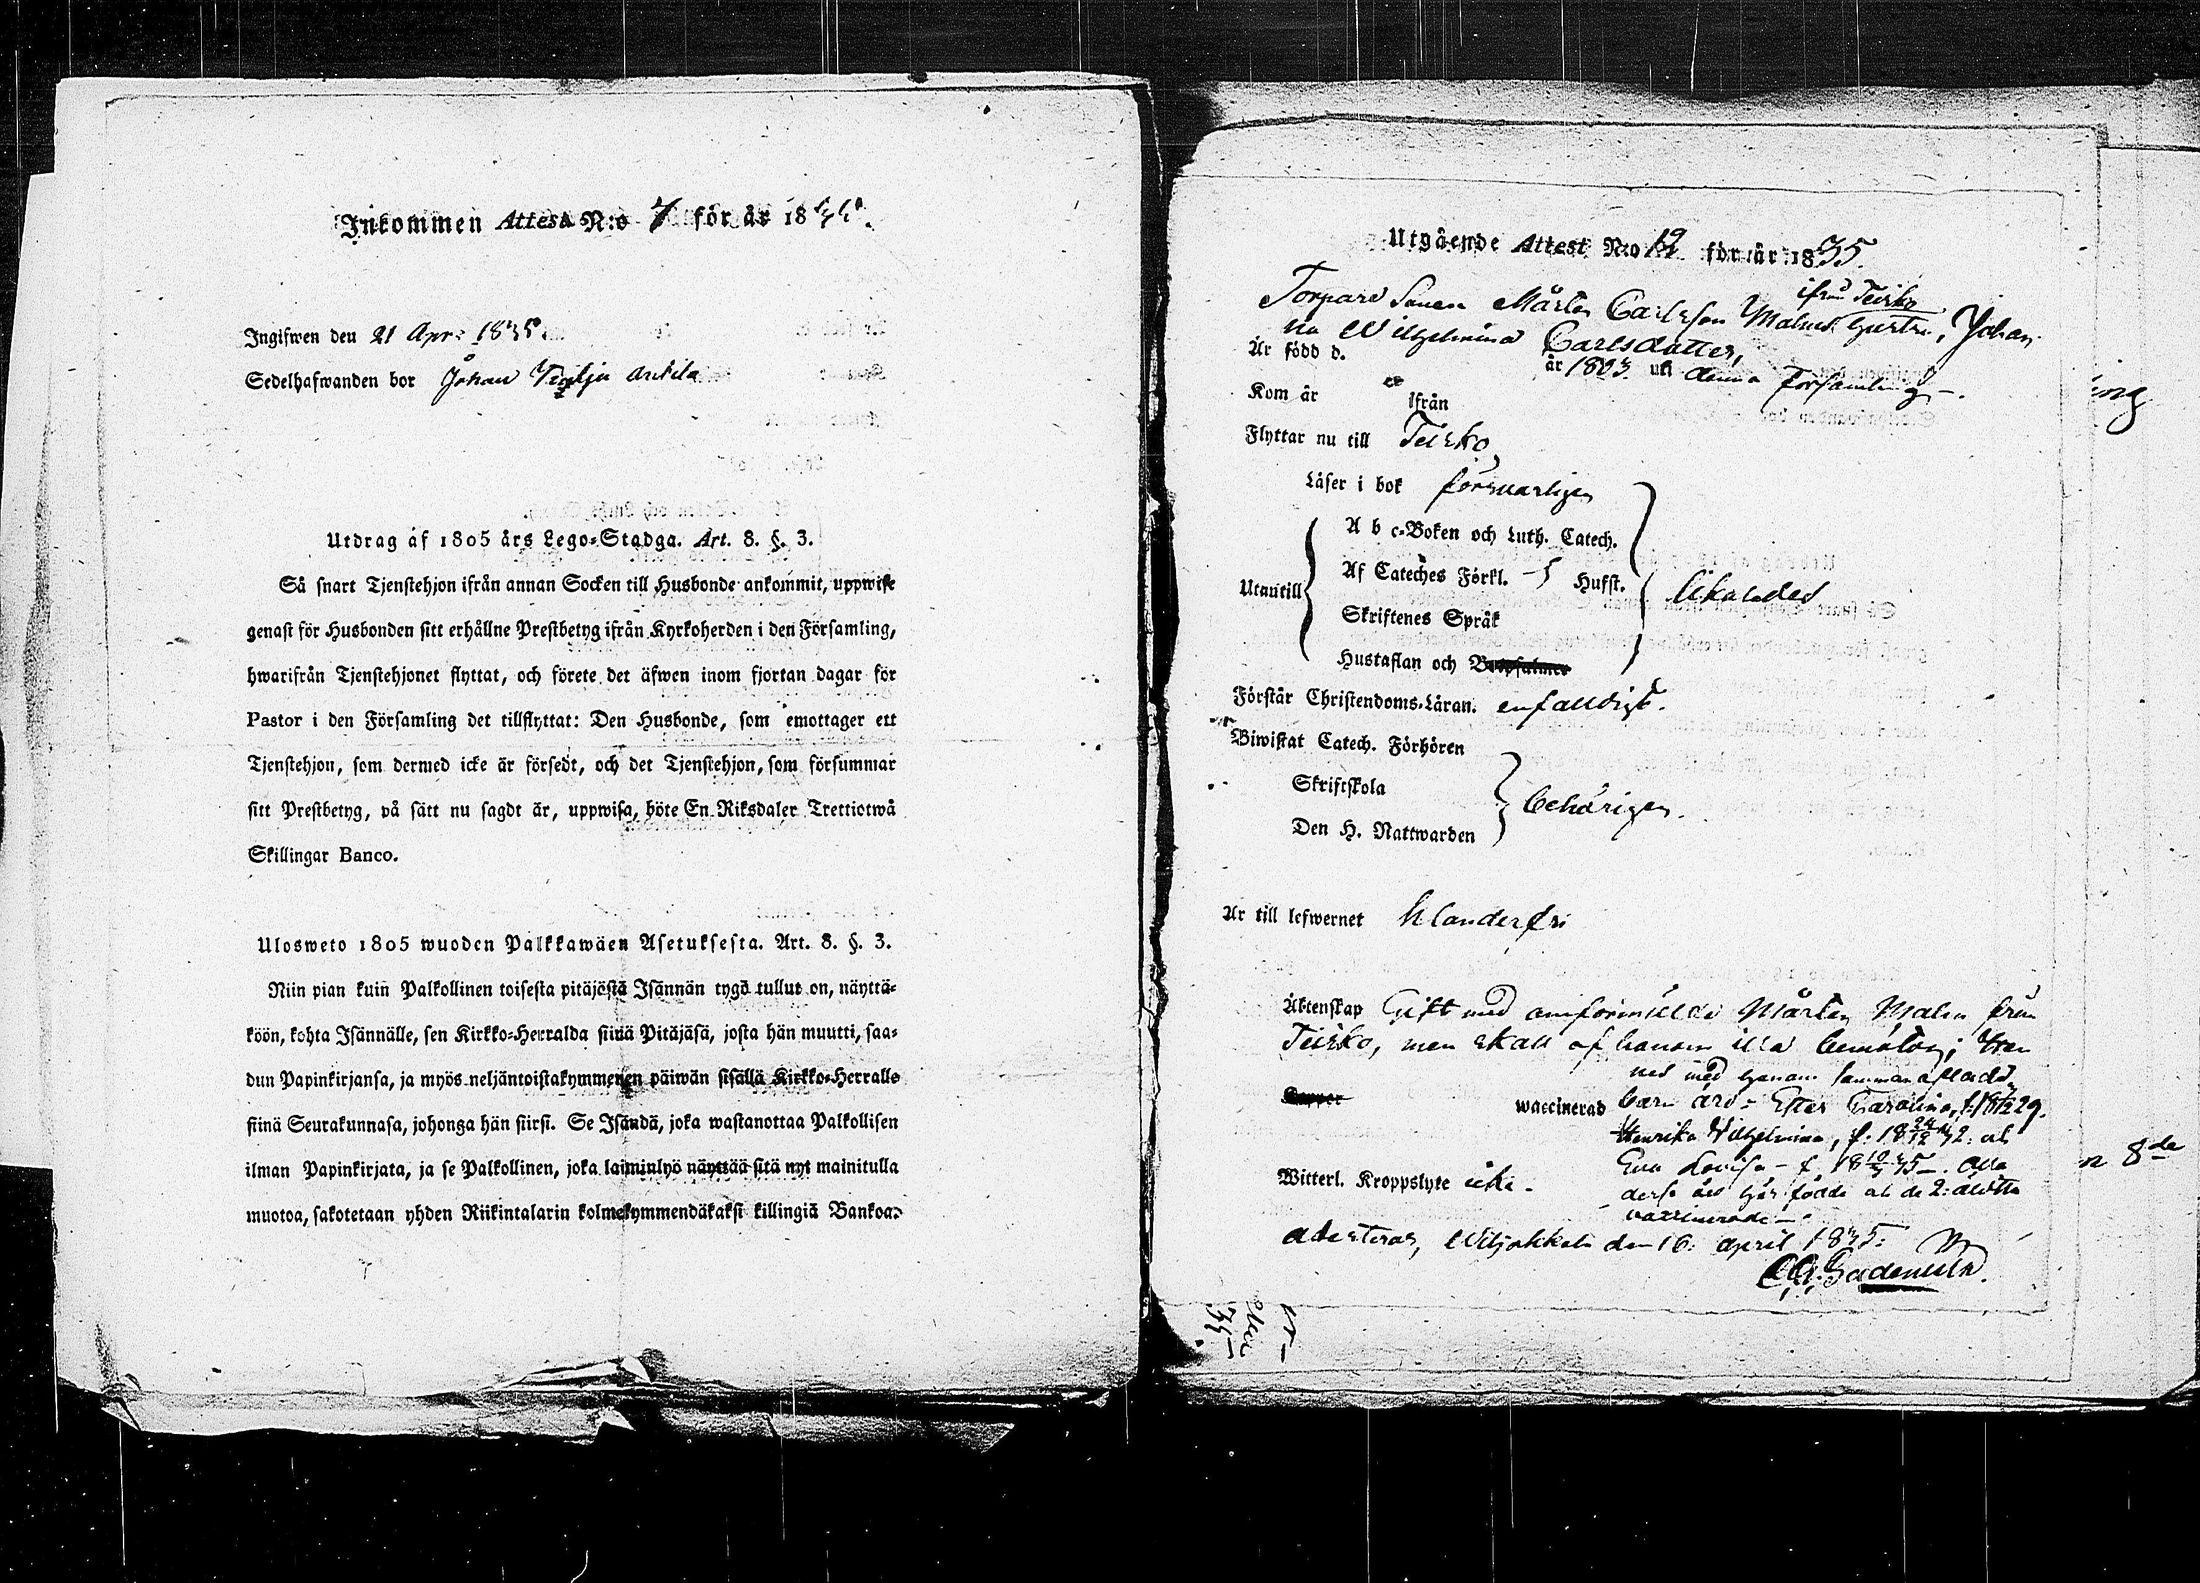 Inkommen Attest N:o 7 för år 1835.
Ingifwen den 21 Apr: 1835
Sedelhafwanden bor Johan Antila
Utdrag af 1805 års Lego-Stadga. Art. 8. §. 3.
Så snart Tjenstehjon ifrån annan Socken till Husbonde ankommit, uppwise
genast för Husbonden sitt erhållne Prestbetyg ifrån Kyrkoherden i den Församling,
hwarifrån Tjenstehjonet flyttat, och förete det äfwen inom fjortan dagar för
Pastor i den Församling det tillflyttat: Den Husbonde, som emottager ett
Tjenstehjon, som dermed icke är försedt, och det Tjenstehjon, som försummar
sitt Prestbetyg, på sätt nu sagdt är, uppwisa, böte En Riksdaler Trettiotwå
Skillingar Banco.
Ulosweto 1805 wuoden Palkkawäen Asetuksesta. Art. 8. §. 3.
Niin pian kuin Palkollinen toisesta pitäjästä Isännän tygö tullut on, näyttä-
köön, kohta Isännälle, sen Kirkko-Herralda siinä Pitäjäsä, josta hän muutti, saa-
dun Papinkirjansa, ja myös neljäntoistakymmenen päiwän sisällä Kirkko-Herralle
siinä Seurakunnasa, johonga hän siirsi. Se Isändä, joka wastanottaa Palkollisen
ilman Papinkirjata, ja se Palkollinen, joka laiminlyö näyttää sitä nyt mainitulla
muotoa, sakotetaan yhden Riikintalarin kolmekymmendäkaksi killingiä Bankoa.
Utgående Attest N:o 19 för år 1835.
ifrån Teisko
Torpare Sonen Mårten Carlsson Malms hustru, Johan
na Wilhelmina Carlsdotter,
Är född d. år 1803 uti denna Församling.
Kom år ifrån
Flyttar nu till Teisko
Läser i bok försvarligen
A b c-Boken och Luth. Catech.
Utantill Af Cateches Förkl. - 5 Husst. likaledes
Skriftenes Språk
Hustaflan och Botpsalmer
Förstår Christendoms-Läran. enfaldigt.
Biwistat Catech. Förhören
Skriftskola behörigen.
Den H. Nattwarden
Är till lefwernet klanderfri
Äktenskap Gift med omförmälde Mårten Malm från
Teisko, men skall af honom illa bemötts; Hen
nes med honom samman aflade
Kopper waccinerad barn äro: Ester Carolina, f. 18 29.
Henrika Wilhelmina, f: 18 24/12 32: och
Eva Lovisa - f. 18 35 -. Alla
Witterl. Kroppslyte icke - desse äro här födde och de 2: äldsta
vaccinerade -
Attesteras, Wiljakkala den 16: April 1835: